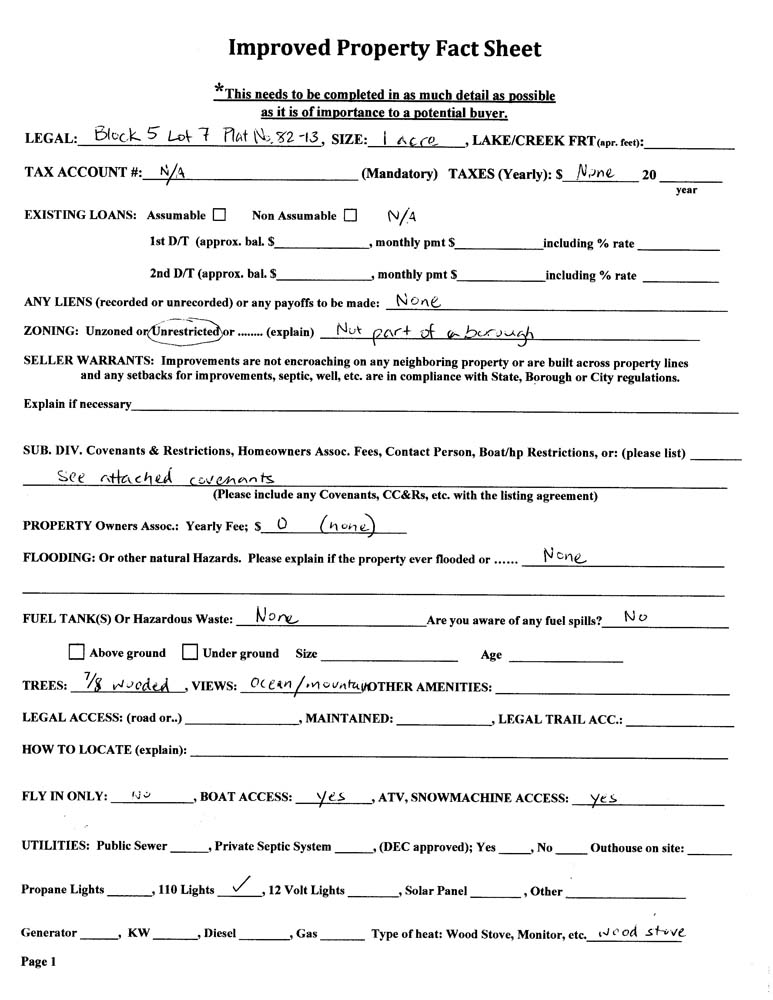 Improved Property Fact Sheet
*This needs to be completed in as much detail as possible
as it is of importance to a potential buyer.
LEGAL: Block 5 Lot 7 Plat No. 82-13, SIZE: 1 acre, LAKE/CREEK FRT(apr. feet):
TAX ACCOUNT #: N/A (Mandatory) TAXES (Yearly): $ None 20
year
EXISTING LOANS: Assumable ☐ Non Assumable ☐ N/A
1st D/T (approx. bal. $____, monthly pmt $____including % rate ____
2nd D/T (approx. bal. $____, monthly pmt $____including % rate ____
ANY LIENS (recorded or unrecorded) or any payoffs to be made: None
ZONING: Unzoned or Unrestricted or ........ (explain) Not part of a borough
SELLER WARRANTS: Improvements are not encroaching on any neighboring property or are built across property lines
and any setbacks for improvements, septic, well, etc. are in compliance with State, Borough or City regulations.
Explain if necessary____
SUB. DIV. Covenants & Restrictions, Homeowners Assoc. Fees, Contact Person, Boat/hp Restrictions, or: (please list) ____
See attached covenants
(Please include any Covenants, CC&Rs, etc. with the listing agreement)
PROPERTY Owners Assoc.: Yearly Fee; $ 0 (none)
FLOODING: Or other natural Hazards. Please explain if the property ever flooded or ...... None
FUEL TANK(S) Or Hazardous Waste: None Are you aware of any fuel spills? No
☐ Above ground ☐ Under ground Size ____ Age ____
TREES: 7/8 wooded, VIEWS: Ocean/mountain OTHER AMENITIES: ____
LEGAL ACCESS: (road or..) ____, MAINTAINED: ____, LEGAL TRAIL ACC.: ____
HOW TO LOCATE (explain): ____
FLY IN ONLY: No, BOAT ACCESS: yes, ATV, SNOWMACHINE ACCESS: yes
UTILITIES: Public Sewer ____, Private Septic System ____, (DEC approved); Yes ____, No ____ Outhouse on site: ____
Propane Lights ____, 110 Lights ✓, 12 Volt Lights ____, Solar Panel ____, Other ____
Generator ____, KW ____, Diesel ____, Gas ____ Type of heat: Wood Stove, Monitor, etc. wood stove
Page 1